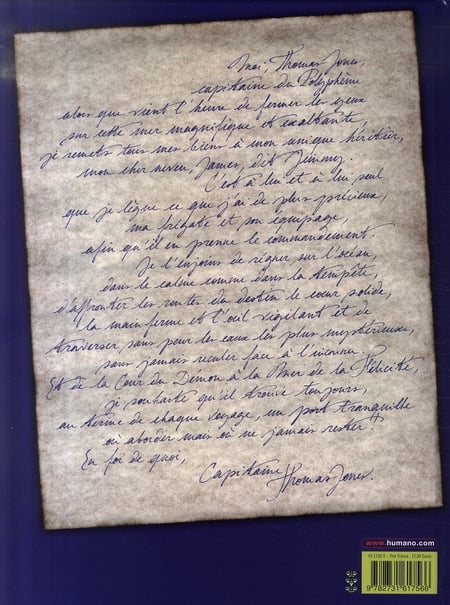 Moi, Thomas Jones,
capitaine du Polyphème
alors que vient l'heure de fermer les yeux
sur cette mer magnifique et exaltante
je remets tous mes biens à mon unique héritier,
mon cher neveu, James, dit Jimmy.
C'est à lui et à lui seul
que je lègue ce que j'ai de plus précieux,
ma frégate et son équipage,
afin qu'il en prenne le commandement.
Je l'enjoins de régner sur l'océan,
dans le calme comme dans la tempête,
d'affronter les routes du destin le cœur solide,
la main ferme et l'œil vigilant et de
traverser sans peur les eaux les plus mystérieuses,
sans jamais reculer face à l'inconnu.
Et de la Cour du Démon à la Mer de la Félicité,
je souhaite qu'il trouve toujours,
au terme de chaque voyage, un port tranquille
où aborder mais où ne jamais rester
En foi de quoi,
Capitaine Thomas Jones.
www.humano.com
42 1156 9 - Prix France - 12,90 Euros
9 782731 617566